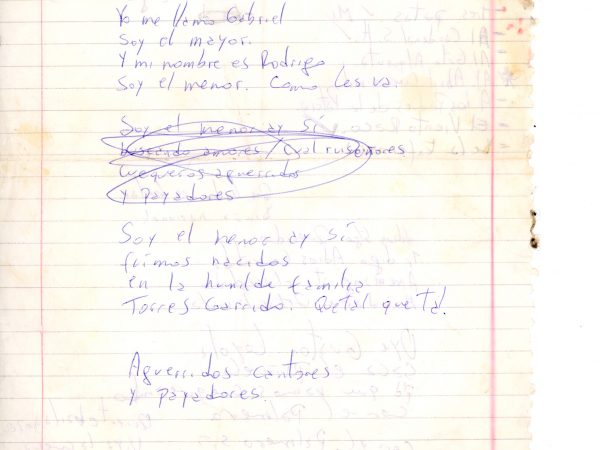 Yo me llamo Gabriel
Soy el mayor.
Y mi nombre es Rodrigo
Soy el menor. Como les va.
Soy el menor ay sí
buscando amores / Cual ruiseñores
cuequeros aguerridos
y payadores
Soy el menor ay sí
fuimos nacidos
en la humilde familia
Torres Garrido. Que tal que tal.
Aguerridos cantores
y payadores.